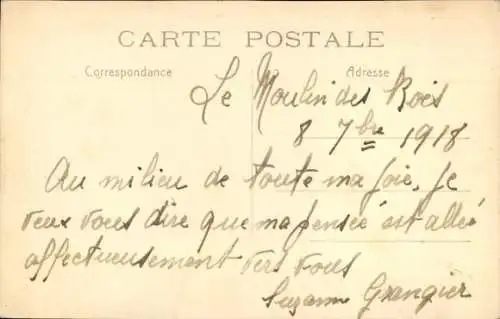 CARTE POSTALE
Correspondance Adresse
Le Moulin des Bois
8 7bre 1918
Au milieu de toute ma joie, je
veux vous dire que ma pensée est allée
affectueusement vers vous
Suzanne Grangier